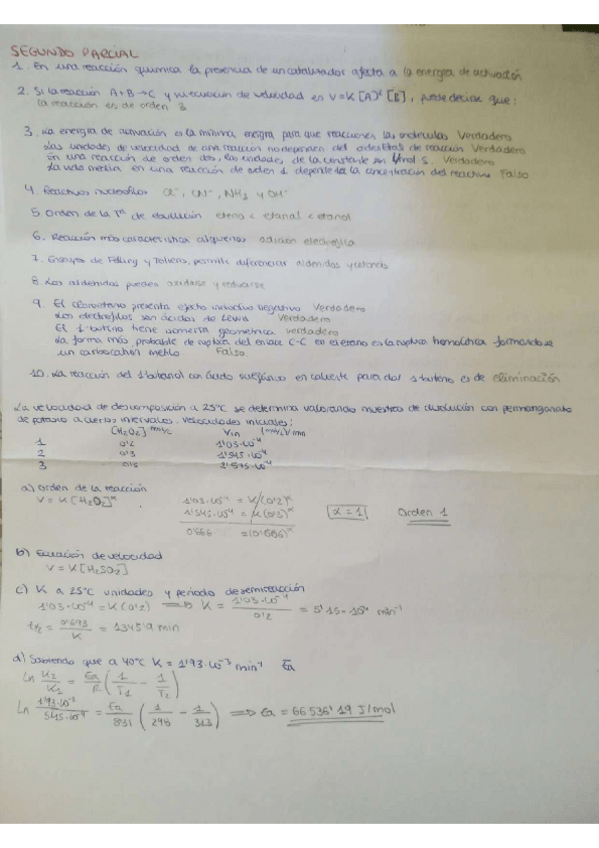 SEGUNDO PARCIAL
1. En una reacción química la presencia de un catalizador afecta a la energía de activación
2. Si la reacción A+B→C y su ecuación de velocidad es V=K[A]² [B], puede decirse que:
la reacción es de orden 3
3. La energía de activación es la mínima energía para que reaccionen las moléculas Verdadero
Las unidades de velocidad de una reacción no dependen del orden de reacción Verdadero
En una reacción de orden dos, las unidades de la constante son L/mol s. Verdadero
La vida media en una reacción de orden 1 depende de la concentración del reactivo Falso
4. Reactivos nucleófilos Cl⁻, CN⁻, NH3 y OH⁻
5. Orden de la Tª de ebullición eteno < etanal < etanol
6. Reacción más característica alquenos adición electrofílica
7. Ensayos de Fehling y Tollens, permite diferenciar aldehidos y cetonas
8. Los aldehidos pueden oxidarse y reducirse
9. El cloroetano presenta efecto inductivo negativo Verdadero
Los electrófilos son ácidos de Lewis Verdadero
El 1-butino tiene isomería geométrica verdadero
La forma más probable de ruptura del enlace C-C en el etano es la ruptura homolítica formandose
un carbocatión metilo Falso
10. La reacción del 1butanol con ácido sulfúrico en caliente para dar 1buteno es de eliminación
La velocidad de descomposición a 25ºC se determina valorando muestras de disolución con permanganato
de potasio a ciertos intervalos. Velocidades iniciales:
[H2O2] mol/L Vin (mol/L min
1 0'2 1'03·10⁻⁴
2 0'3 1'545·10⁻⁴
3 0'5 2'575·10⁻⁴
a) Orden de la reacción
V = K[H2O2]ˣ 1'03·10⁻⁴ = K(0'2)ˣ
1'545·10⁻⁴ = K(0'3)ˣ α = 1 Orden 1
0'666 = (0'666)ˣ
b) Ecuación de velocidad
V = K[H2SO2]
c) K a 25ºC unidades y periodo de semireacción
1'03·10⁻⁴ = K(0'2) ⟹ K = 1'03·10⁻⁴/0'2 = 5'15·10⁻⁴ min⁻¹
t1/2 = 0'693/K = 1345'9 min
d) Sabiendo que a 40ºC K = 1'93·10⁻³ min⁻¹ Ea
Ln K2/K1 = Ea/R (1/T1 − 1/T2)
Ln 1'93·10⁻³/5'15·10⁻⁴ = Ea/8'31 (1/298 − 1/313) ⟹ Ea = 66536'19 J/mol